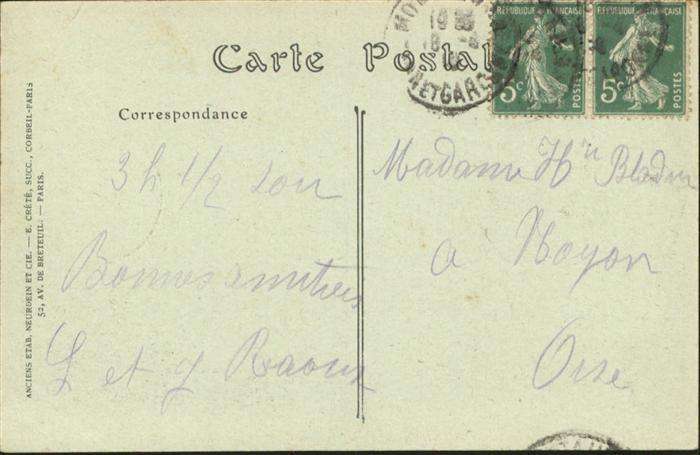 Carte Postale
Correspondance
3h 1/2 soir
Bonnes amitiés
L et J Raoux
Madame Hri
à Noyon
Oise
ANCIENS ETAB. NEURDEIN ET CIE. — E. CRÉTÉ, SUCC., CORBEIL-PARIS
52, AV. DE BRETEUIL. — PARIS.
RÉPUBLIQUE FRANÇAISE
5c
POSTES
RÉPUBLIQUE FRANÇAISE
5c
POSTES
ET GARONNE